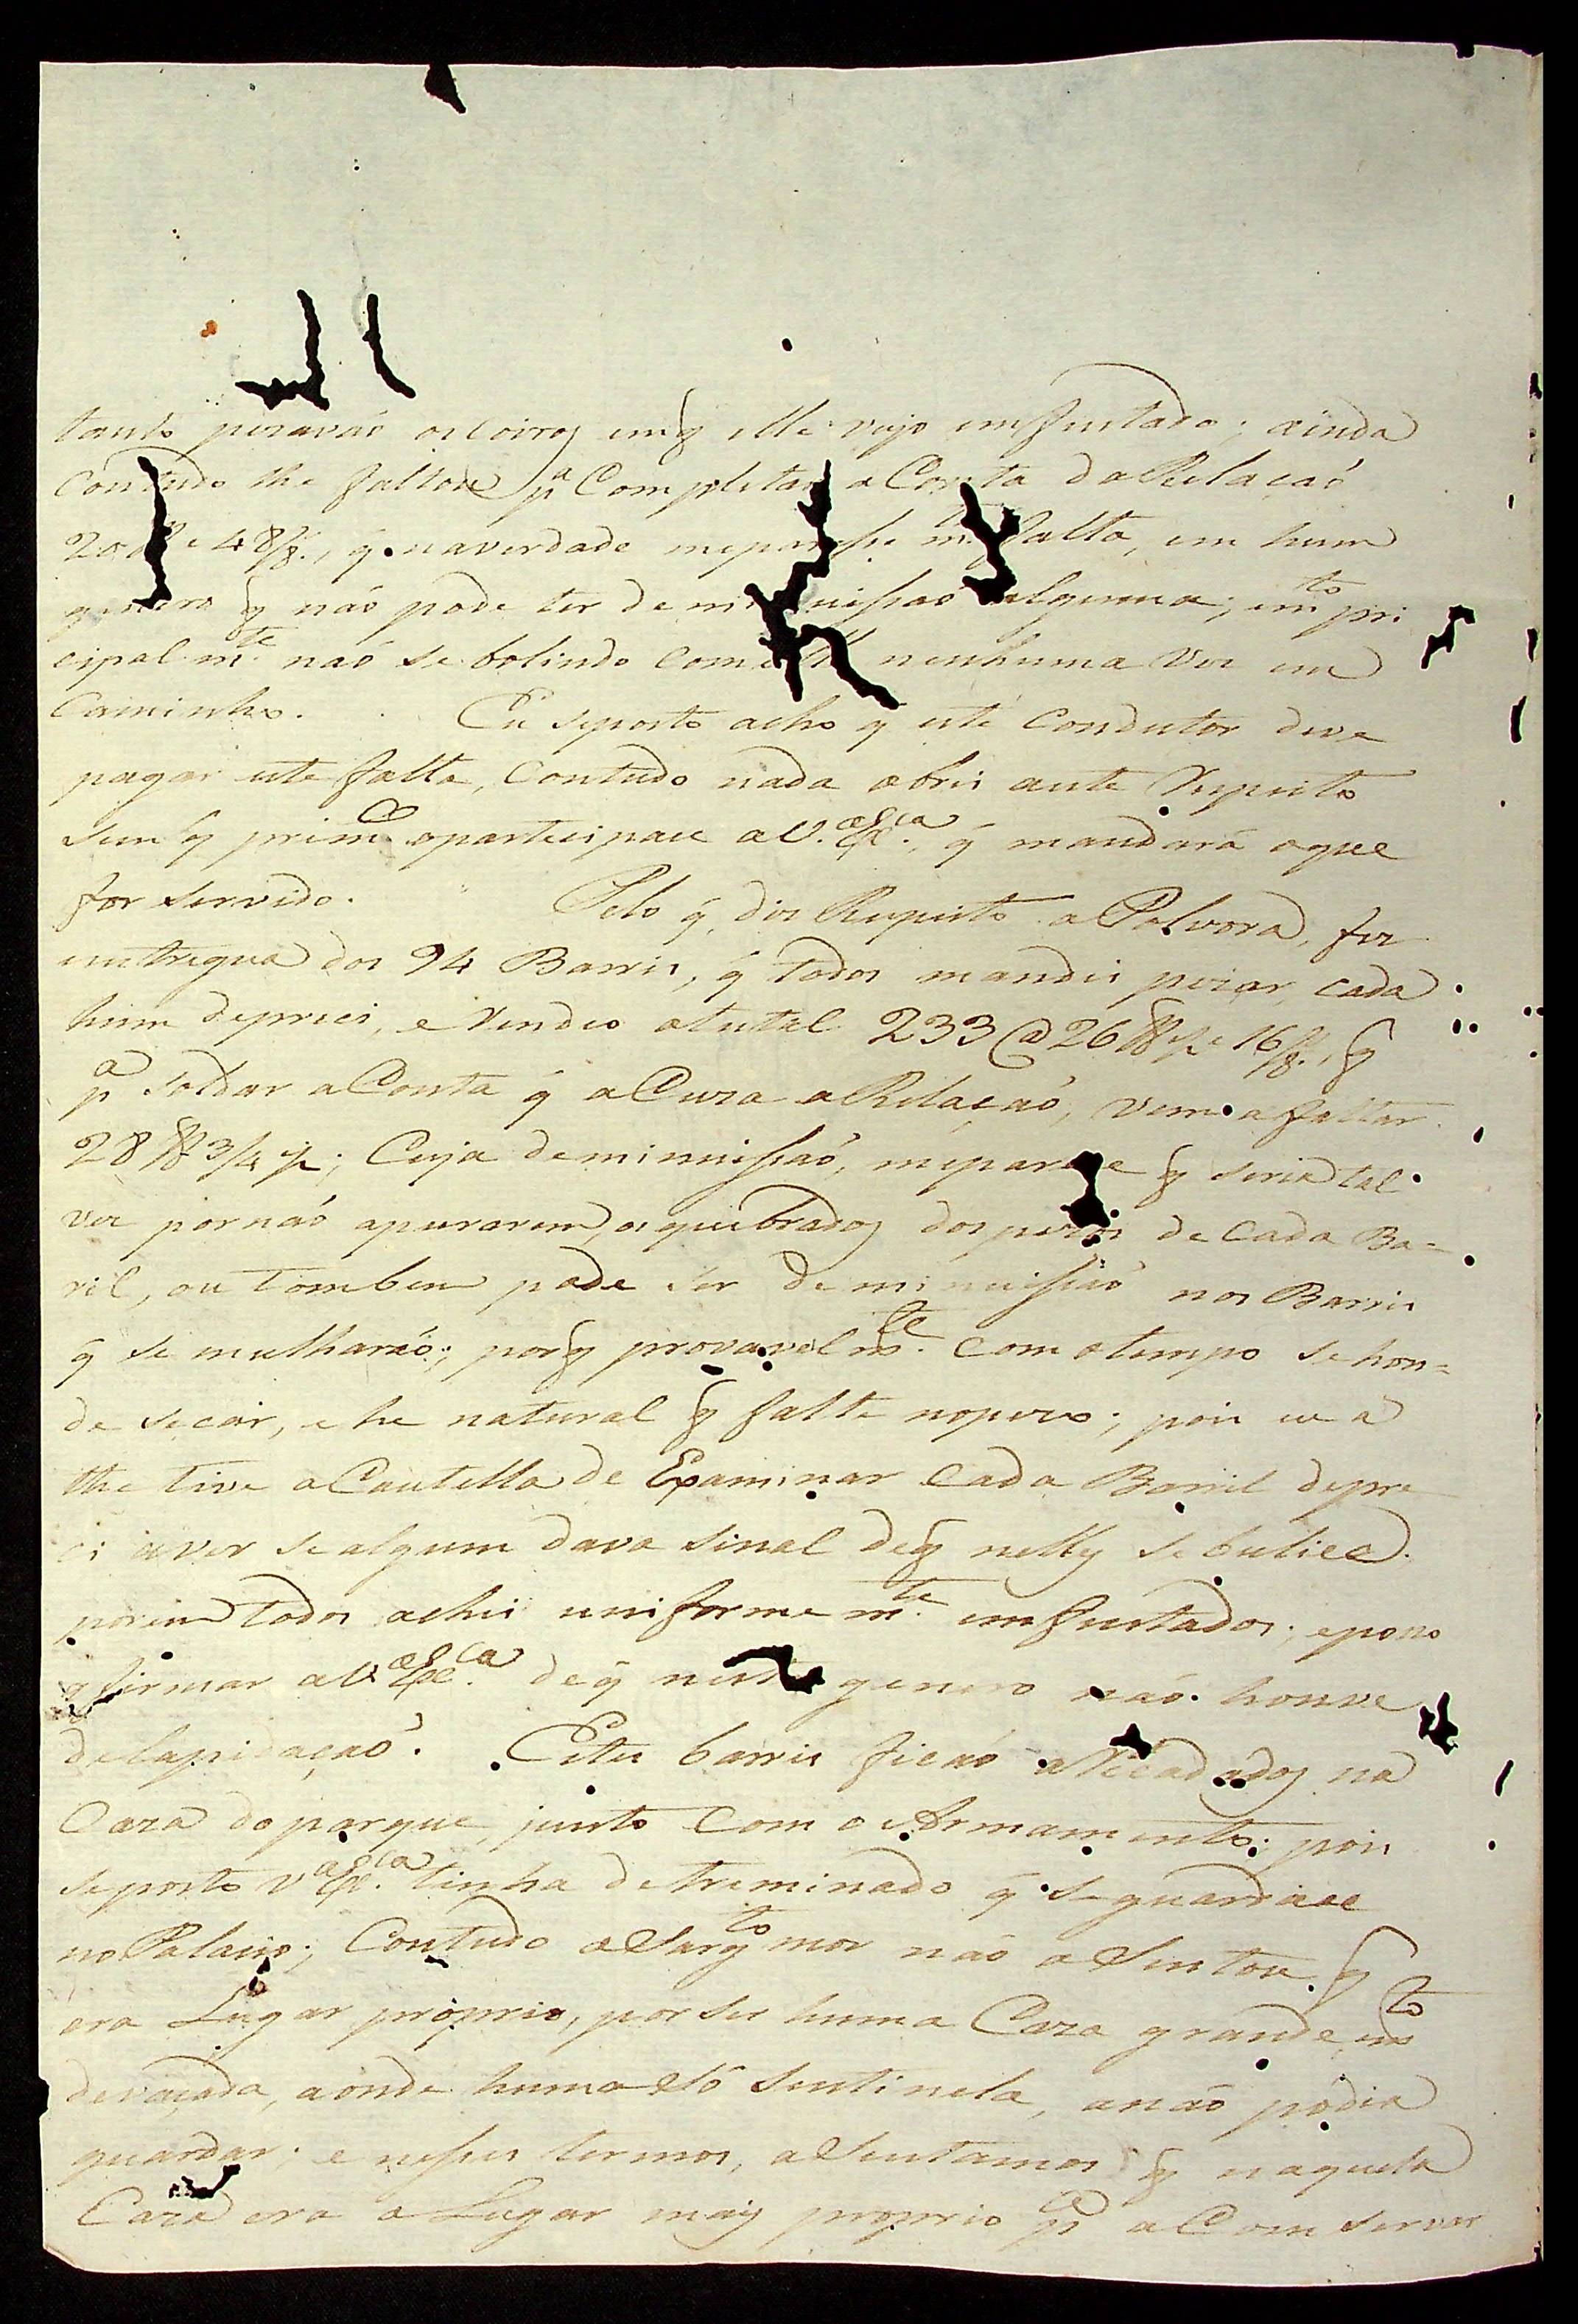 tanto pezavaó os Coiros em q̃ elle vejo emfurtado; ainda
Contudo lhe faltou pª Completar a Conta da Relaçaó
20 e 48/8.as, q̃ na verdade me parese m.ta falta, em hum
genero q̃ naó pode ter deminuiſsaó alguma; em.to pri
cipal m.te naó se bolindo com elle nenhuma vez em
Caminho. Eu seposto acho q̃ este Condutor deve
pagar esta falta, Contudo nada obrei aute Respeito
sem q̃ prim.o o partecipace a V.ª Ex.cia, q̃ mandará o que
for servido. Pelo q̃, diz Respeito a Polvora, fez
emtregua dos 94 Barris, q̃ todos mandei pezar, cada
hum depreci, e Rendeo o tutal 233 @ 26 ℔ ½ e 16/8.as, q̃
pª Soldar a Conta q̃ aCuza a Relaçaó, vem a faltar
28 ℔ 3/4 ½; Cuja deminuiſsaó, me parese q̃ seria tal
vez por naó apurarem, os quebrados dos pezos de Cada Ba=
ril, ou tombem pode ser deminuiſsaó nos Barris
q̃ se mulharaó; porq̃ provavel m.te com o tempo se hon=
de secar, e he natural q̃ falte no pezo; pois eu a
the tive a Cautella de Examinar Cada Barril depre
ci a ver se algum dava sinal de q̃ nelles se bulice.
porem todos achei uniforme m.te emfurtados; e poso
afirmar a V.ª Ex.cia de q̃ neste genero naó houve
delapidaçaó. Estes barris ficaó aRecadados na
Caza do parque, junto com o Armamento; pois
seposto V.ª Ex.cia tinha detreminado q̃ se guardace
no Palacio; Contudo o Sarg.to mor naó aSentou q̃
era Lugar proprio, por ser huma Caza grande, m.to
devaçada, aonde huma só Sentinela, a naó podia
guardar. e neſses termos, aSentamos q̃ naquela
Caza era o Lugar mais proprio pª a Comservar